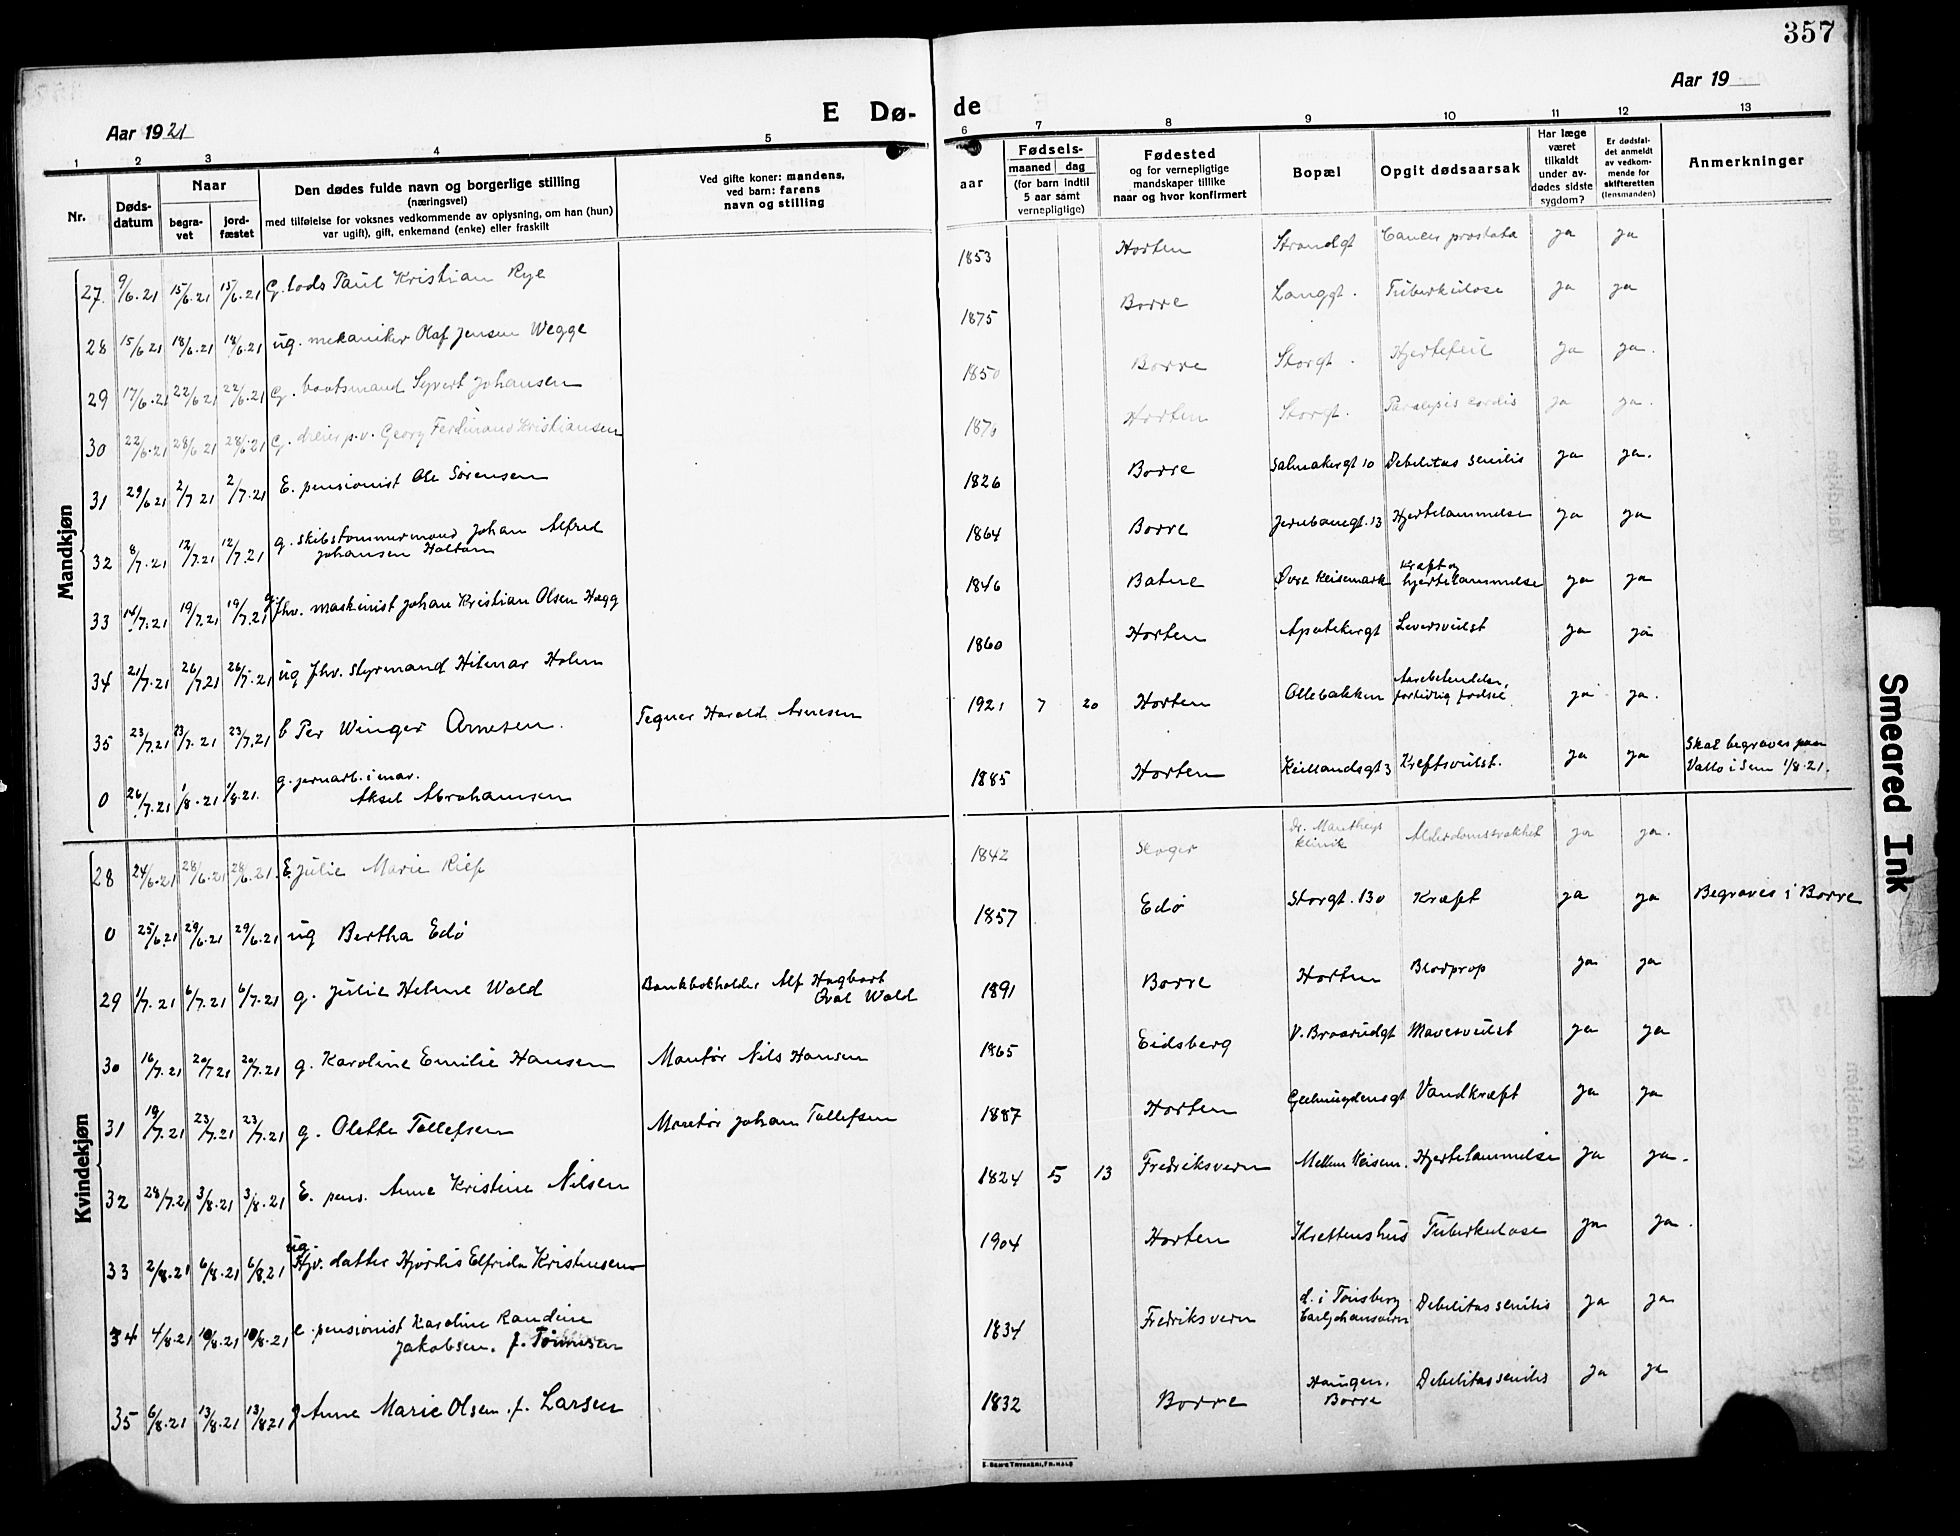 357
Aar 1921
E Dø-
de
Aar 19
1 2 3 4 5 6 7 8 9 10 11 12 13
Nr.
Døds-
datum
Naar
begra-
vet
jord-
fæstet
Den dødes fulde navn og borgerlige stilling
(næringsvei)
med tilføielse for voksnes vedkommende av oplysning, om han (hun)
var ugift), gift, enkemand (enke) eller fraskilt
Ved gifte koner: mandens,
ved barn: farens
navn og stilling
Fødsels-
aar
maaned dag
(for barn indtil
5 aar samt
vernepligtige)
Fødested
og for vernepligtige
mandskaper tillike
naar og hvor konfirmert
Bopæl
Opgit dødsaarsak
Har læge
været
tilkaldt
under av-
dødes sidste
sygdom?
Er dødsfal-
det anmeldt
av vedkom-
mende for
skifteretten
(lensmanden)
Anmerkninger
Mandkjøn
27. 9/6.21 15/6.21 15/6.21 G. lods Paul Kristian Rye 1853 Horten Strandgt Cancer prostata ja ja
28 15/6 21 18/6.21 18/6.21 ug. mekaniker Olaf Jensen Wegge 1875 Borre Langgt. Tuberkulose ja ja
29 17/6.21 22/6 21 22/6.21 G. baatsmand Syvert Johansen 1850 Borre Storgt. Hjertefeil ja ja.
30 22/6.21 28/6 21 28/6.21 G. dreier p.v. Georg Ferdinand Kristiansen Horten Storgt. Paralysis cordis ja ja.
31 29/6 21 2/7 21 2/7.21 E. pensionist Ole Sørensen 1826 Borre Salmakergt 10 Debilitas senilis ja ja.
32 8/7.21 12/7.21 12/7.21 g. skibstømmermand Johan Alfred
Johansen Holtan 1864 Borre Jernbanegt. 13 Hjertelammelse ja ja
33 14/7.21 19/7.21 19/7.21 g. fhv. maskinist Johan Kristian Olsen Hegg 1846 Øvre Keisemark Kræft og
hjertelammelse ja ja
34 21/7.21 26/7.21 26/7.21 ug fhv. styrmand Hilmar Holm 1860 Horten Apotekergt Leversvulst ja ja
35 23/7.21 23/7.21 23/7.21 b Per Winger Arnesen. Tegner Harald Arnesen 1921 7 20 Horten Ollebakken
fortidlig fødsel ja ja.
0 26/7.21 1/8.21 1/8.21. g. jernarb. i mar.
Aksel Abrahamsen 1885 Horten Kiellandsgt 3 Kreftsvulst. ja ja Skal begraves paa
Vallø i Sem 1/8.21.
Kvindekjøn
28 24/6.21 28/6.21 28/6.21. E. Julie Marie Riep 1842 Skoger
Klinik Alderdomssvakhet ja ja.
0 25/6.21 29/6.21 29/6.21 ug Bertha Edø 1857 Edø Storgt. 130 Kræft ja ja Begraves i Borre
29 1/7.21 6/7.21 6/7.21 g. Julie Helene Wold Bankbokholder Alf Hagbart
Oval Wold 1891 Borre Horten Blodprop ja ja
30 16/7.21 20/7 21 20/7.21 g. Karoline Emilie Hansen Montør Nils Hansen 1865 Eidsberg V. Braarudgt Mavesvulst ja ja
31 19/7.21 23/7.21 23/7.21 g. Olette Tollefsen Montør Johan Tollefsen 1887 Horten Geelmuydensgt Vandkræft ja ja
32 28/7.21 3/8.21 3/8.21 E. pens. Anne Kristine Nilsen 1824 5 13 Fredriksvern Mellem Keisem. Hjertelammelse ja ja.
33 2/8.21 6/8.21 6/8.21 ug.
datter Hjørdis Elfrida Kristensen 1904 Horten Tuberkulose ja ja.
34 4/8.21 10/8.21 10/8.21 e. pensionist Karoline Randine
Jakobsen. f. Tønnesen 1834 Fredriksvern d. i Tønsberg
Carljohansvern Debilitas senilis ja ja
35 6/8.21 13/8.21 13/8 21 g Anne Marie Olsen. f. Larsen 1832 Borre Haugen.
Borre Debilitas senilis ja ja
Smeared Ink